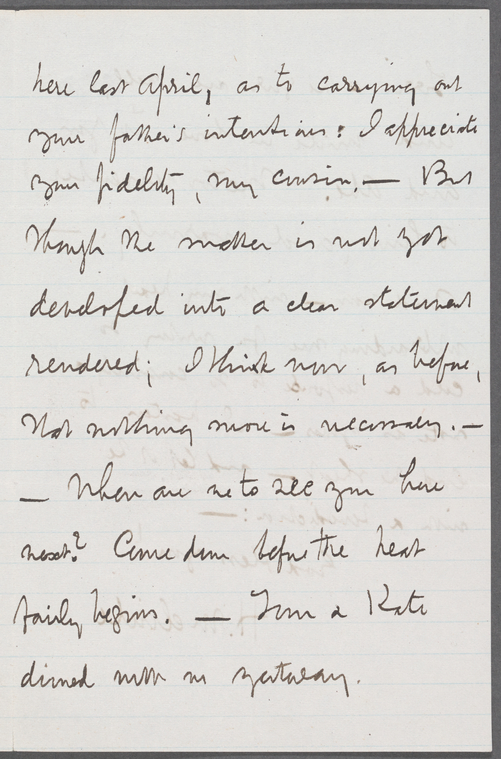 here last April, as to carrying out
your father's intentions: I appreciate
your fidelity, my cousin. — But
though the matter is not yet
developed into a clear statement
rendered; I think now, as before,
that nothing more is necessary. —
— When are we to see you here
next? Come down before the heat
fairly begins. — Tom & Kate
dined with us yesterday.